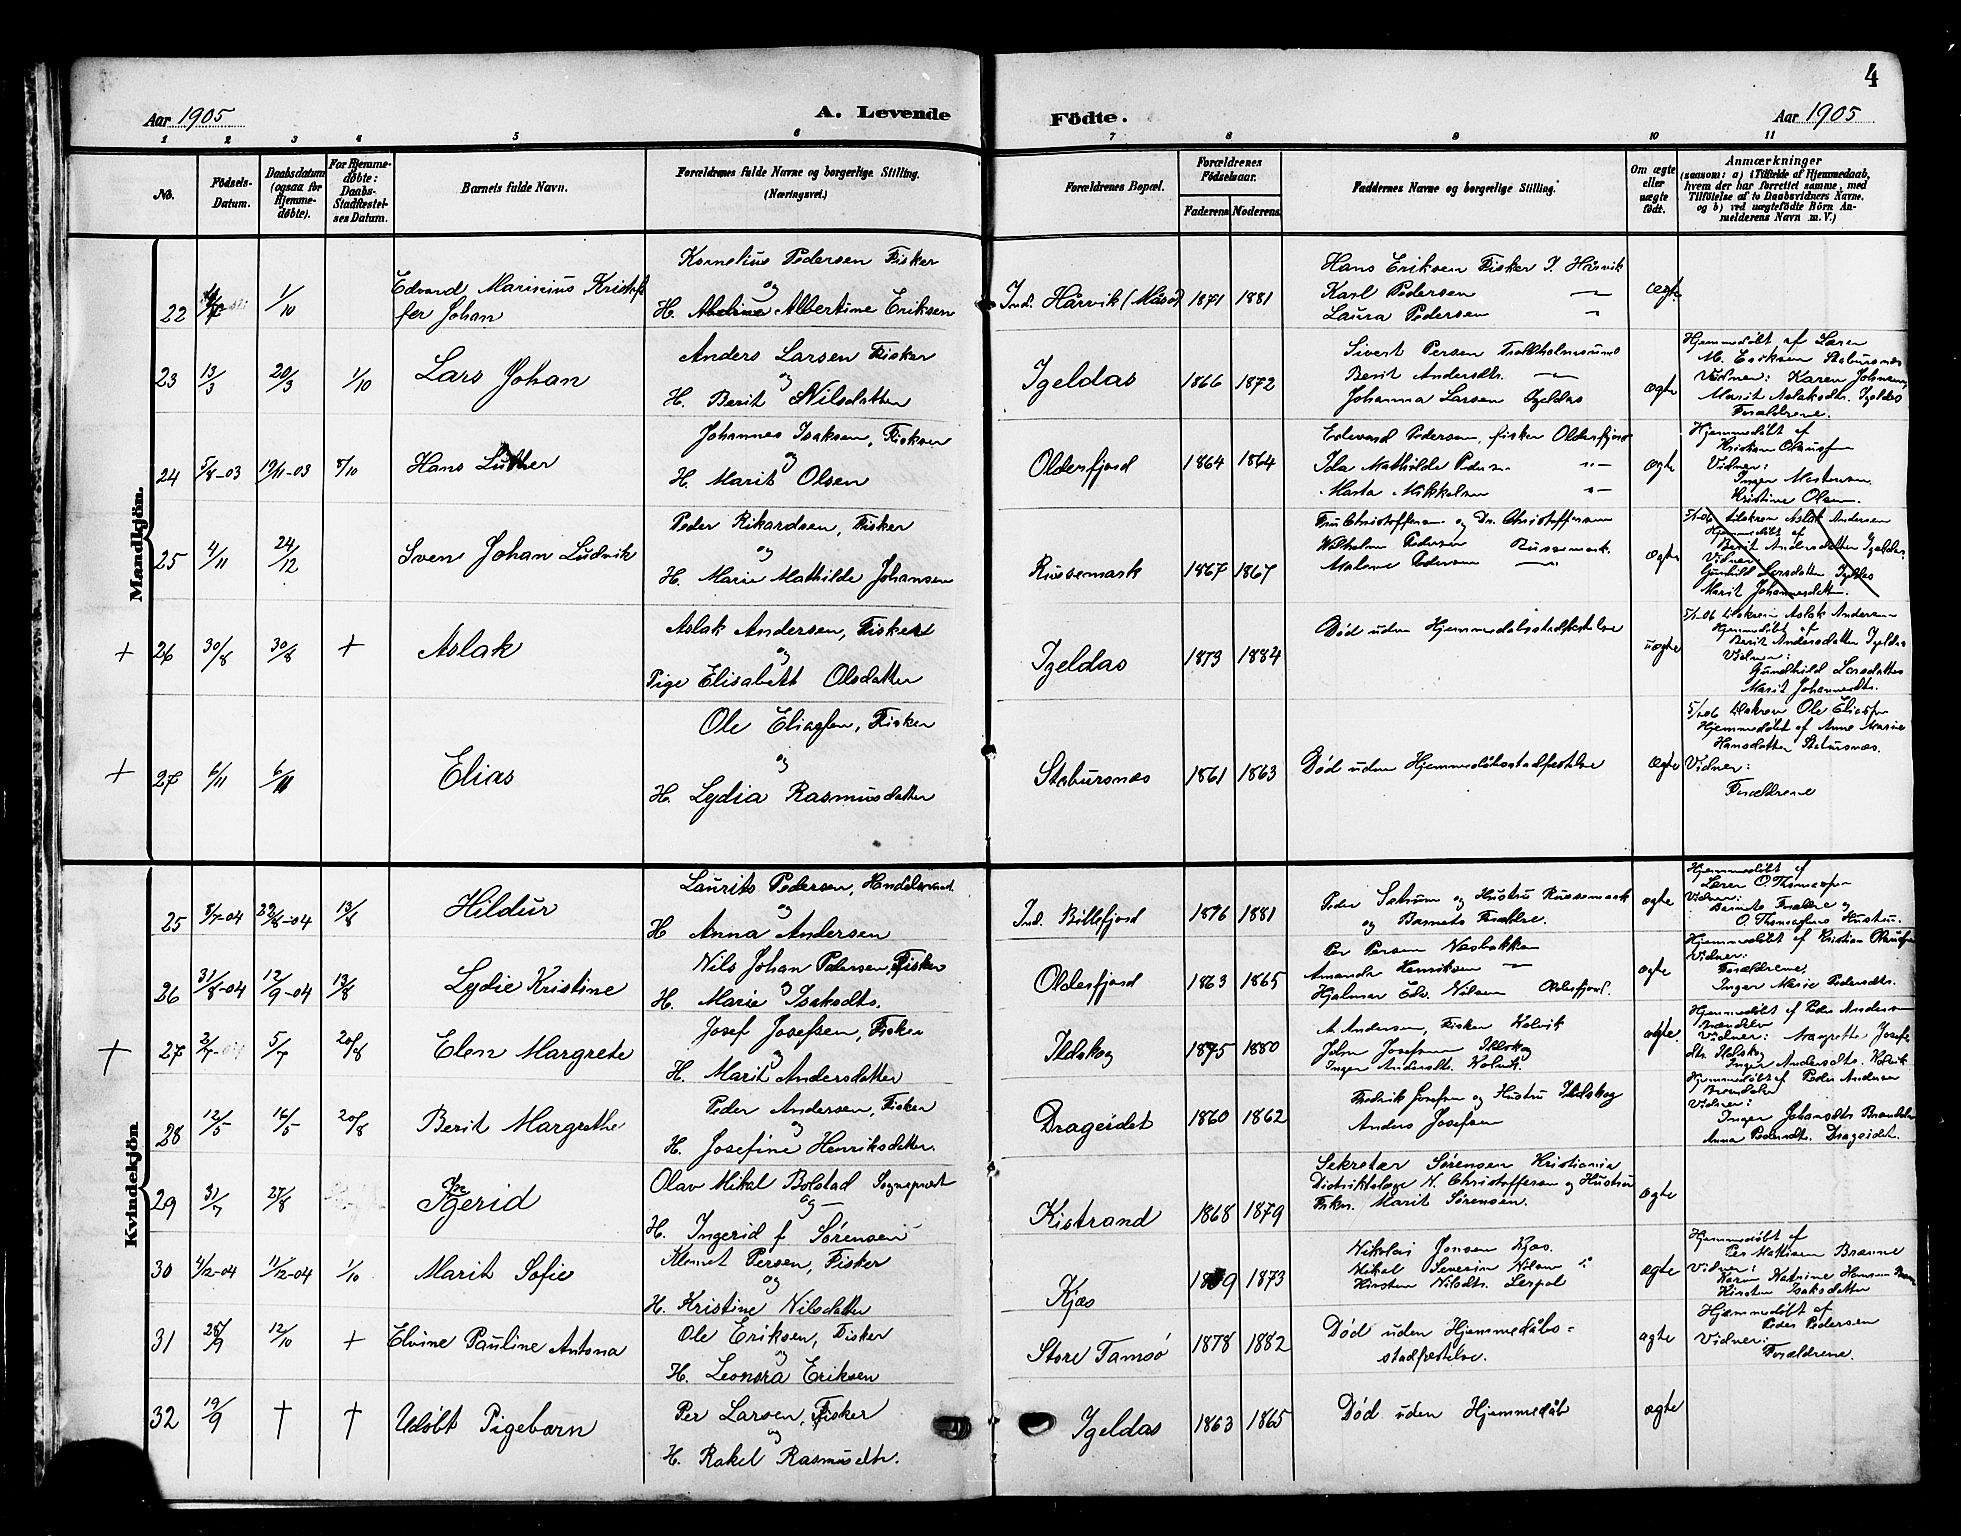 4
Aar 1905
A. Levende
Födte.
Aar 1905
1 2 3 4 5 6 7 8 9 10 11
No.
Födsels-Datum.
Daabsdatum (ogsaa for Hjemmedøbte).
For Hjemmedøbte: Daabs-Stadfæstelses Datum.
Barnets fulde Navn.
Forældrenes fulde Navne og borgerlige Stilling.
(Næringsvei.)
Forældrenes Bopæl.
Forældrenes Födselsaar.
Faderens Moderens
Faddernes Navne og borgerlige Stilling.
Om ægte eller uægte født.
Anmærkninger
(saasom: a) i Tilfælde af Hjemmedaab, hvem der har forrettet samme, med Tilföielse af to Daabsvidners Navne, og b) ved uægtefödte Börn Anmelderens Navn m. V.)
Mandkjön.
22 1/10 Edvard Marinius Kristoffer Johan
Kornelius Pedersen Fisker
og
H. Albertine Eriksen
Ind. Hårvik (Måsø) 1871 1881
Hans Eriksen Fisker I. Hårvik
Karl Pedersen —"—
Laura Pedersen "
ægte
23 13/3 20/3 1/10 Lars Johan
Anders Larsen Fisker
og
H. Berit Nilsdatter
Igeldas 1866 1872
Sivert Persen Troldholmsund
Berit Andersdtr. —"—
Johanna Larsen Igeldas
ægte
Hjemmedøbt af Lærer
M. Eriksen Stabursnæs
Vidner: Karen Johnsen
Marit Aslaksdtr. Igeldas
Forældrene.
24 5/8-03 19/11-03 8/10 Hans Luther
Johannes Isaksen, Fisker
og
H. Marit Olsen
Olderfjord 1864 1864
Edevard Pedersen, fisker Olderfjord
Ida Mathilde Pedersen "—
Marta Mikkelsen "—
ægte
Hjemmedøbt af
Vidner:
Inger Mortensen
Kristine Olsen.
25 4/11 24/12 Sven Johan Ludvik
Peder Rikardsen, Fisker
og
H. Marie Mathilde Johansen
Russemark 1867 1867
Fru Christoffersen og Dr. Christoffersen
Wilhelm Pedersen Russemark.
Malene Pedersen —"—
ægte
5/1-06 tilskrev Aslak Andersen
Hjemmedøbt af
Berit Andersdatter Igeldas
Vidner
Gunhild Larsdatter Igeldas
Marit Johannesdatter.
+ 26 30/8 30/8 + Aslak
Aslak Andersen, Fisker
og
Pige Elisabett Olsdatter
Igeldas 1873 1884
Død uden Hjemmedåbsstadfestelse
uægte
5/1-06 tilskrev Aslak Andersen
Hjemmedøbt af
Berit Andersdatter Igeldas
Vidner:
Gundhild Larsdatter
Marit Johannesdtr.
+ 27 6/11 6/11 Elias
Ole Eliassen, Fisker
og
H. Lydia Rasmusdatter
Stabursnæs 1861 1863
Død uden Hjemmedåbsstadfestelse
ægte
5/1-06 tilskrev Ole Eliassen
Hjemmedøbt af Anne Marie
Hansdatter Stabursnæs.
Vidner:
Forældrene
Kvindekjön
25 8/7-04 29/8-04 13/8 Hildur
Laurits Pedersen, Handelsmand
og
H Anna Andersen
Ind. Billefjord 1876 1881
Peder Sætrum og Hustru Russemark
og Barnets Forældre.
ægte
Hjemmedøbt af
Lærer O. Thomassen
Vidner:
Barnets Forældre og
O. Thomassens Hustru.
26 31/8-04 12/9-04 13/8 Lydie Kristine
Nils Johan Pedersen, Fisker
og
H. Marie Isaksdtr.
Olderfjord 1863 1865
Per Persen Næsbakken
Amanda Henriksen —"—
Hjalmar Edv. Nilsen Olderfjord.
ægte
Hjemmedøbt af Kristian
Vidner:
Forældrene,
Inger Marie Pedersdtr.
+ 27 2/7 5/7 20/8 Elen Margrete
Josef Josefsen, Fisker
og
H. Marit Andersdatter
Ildskog 1875 1880
A. Andersen, Fisker Kolvik
John Josefsen Ildskog
Inger Andersdtr. Kolvik
ægte.
Hjemmedøbt af Peder Andersen
Brændelv
Vidner: Margrette Josefs
dtr. Ildskog
Inger Andersdtr. Kolvik
28 12/5 16/5 20/8 Berit Margrethe
Peder Andersen, Fisker
og
H. Josefine Henriksdatter.
Drageidet 1860 1862
Fredrik Josefsen og Hustru Ildskog
Anders Josefsen
Hjemmedøbt af Peder Andersen
Brændelv
Vidner:
Inger Johansdtr Brændelv
Anna Pedersdt. Drageidet.
29 31/7 27/8 Ingerid
Olav Mikal Bolstad Sogneprest
— og —
H. Ingerid f Sørensen
Kistrand 1868 1879
Sekretær Sørensen Kristiania
Distriktslæge N. Christoffersen og Hustru
Frkn. Marit Sørensen.
ægte
30 4/2-04 11/2-04 1/10 Marit Sofie
Klemet Persen, Fisker
og
H. Kristine Nilsdatter
Kjæs 1873
Nikolai Jonsen Kjæs.
Mikal Severin Nilsen "
Kirsten Nilsdtr. Lerpol
ægte
Hjemmedøbt af
Per Mathisen Brænne
Vidner:
Karen Katrine Hansen
Kirsten Isaksdatter
31 28/9 12/10 + Elvine Pauline Antona
Ole Eriksen, Fisker
og
H. Leonora Eriksen
Store Tamsø 1878 1882
Død uden Hjemmedåbs-
stadfestelse.
ægte
Hjemmedøbt af
Peder Pedersen
Vidner:
Forældrene.
32 19/9 † † Udøbt Pigebarn
Per Larsen, Fisker
og
H. Rakel Rasmusdtr.
Igeldas 1863 1865
Død uden Hjemmedåb
ægte